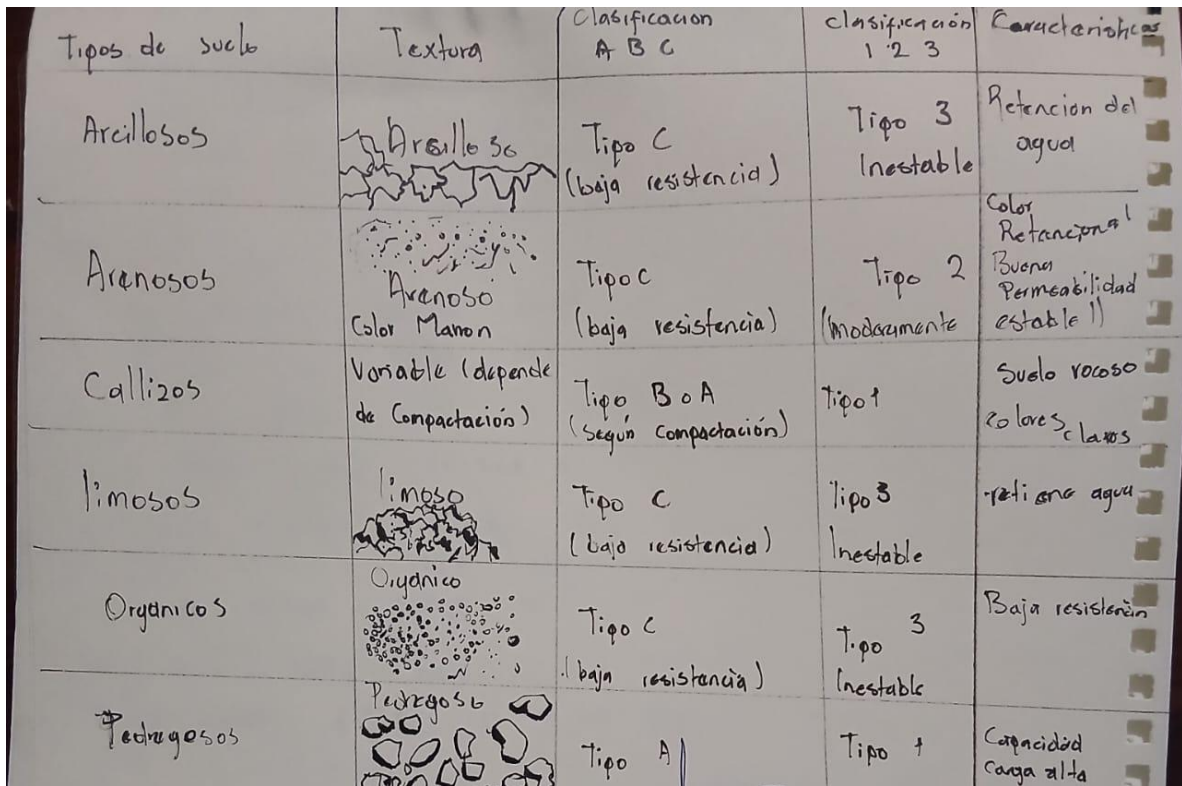 Tipos de suelo
Textura
Clasificacion
A B C
clasificación
1 2 3
Caracteristicas
Arcillosos
Arsilloso
Tipo C
(baja resistencia)
Tipo 3
Inestable
Retencion del
agua
Arenosos
Arenoso
Color Marron
Tipo C
(baja resistencia)
Tipo 2
(moderamente
Color
Buena
Permeabilidad
estable))
Callizos
Variable (depende
de Compactación)
Tipo B o A
(según Compactación)
Tipo 1
Suelo rocoso
colores claros
limosos
limoso
Tipo C
(bajo resistencia)
Tipo 3
Inestable
-retiene agua
Organicos
Organico
Tipo C
(baja resistencia)
Tipo 3
Inestable
Baja resistencia
Pedregosos
Pedregoso
Tipo A
Tipo 1
Capacidad
Carga alta